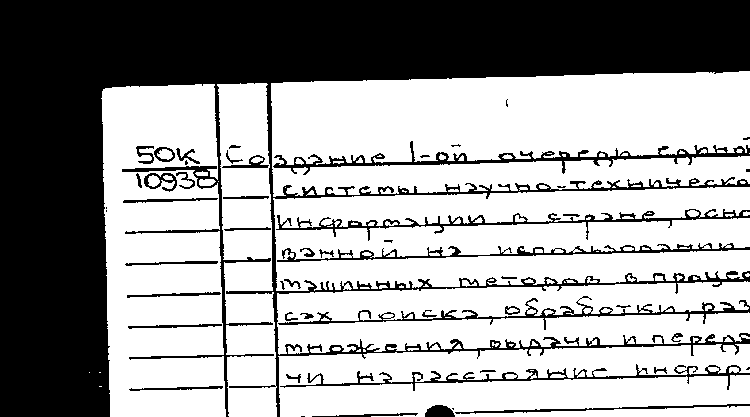 50К Создание 1-ой очереди единой
10938 системы научно-технической
информации в стране, осно
ванной на использовании
машинных методов в процес
сах поиска, обработки, раз
множения, выдачи и переда
чи на расстояние инфор-